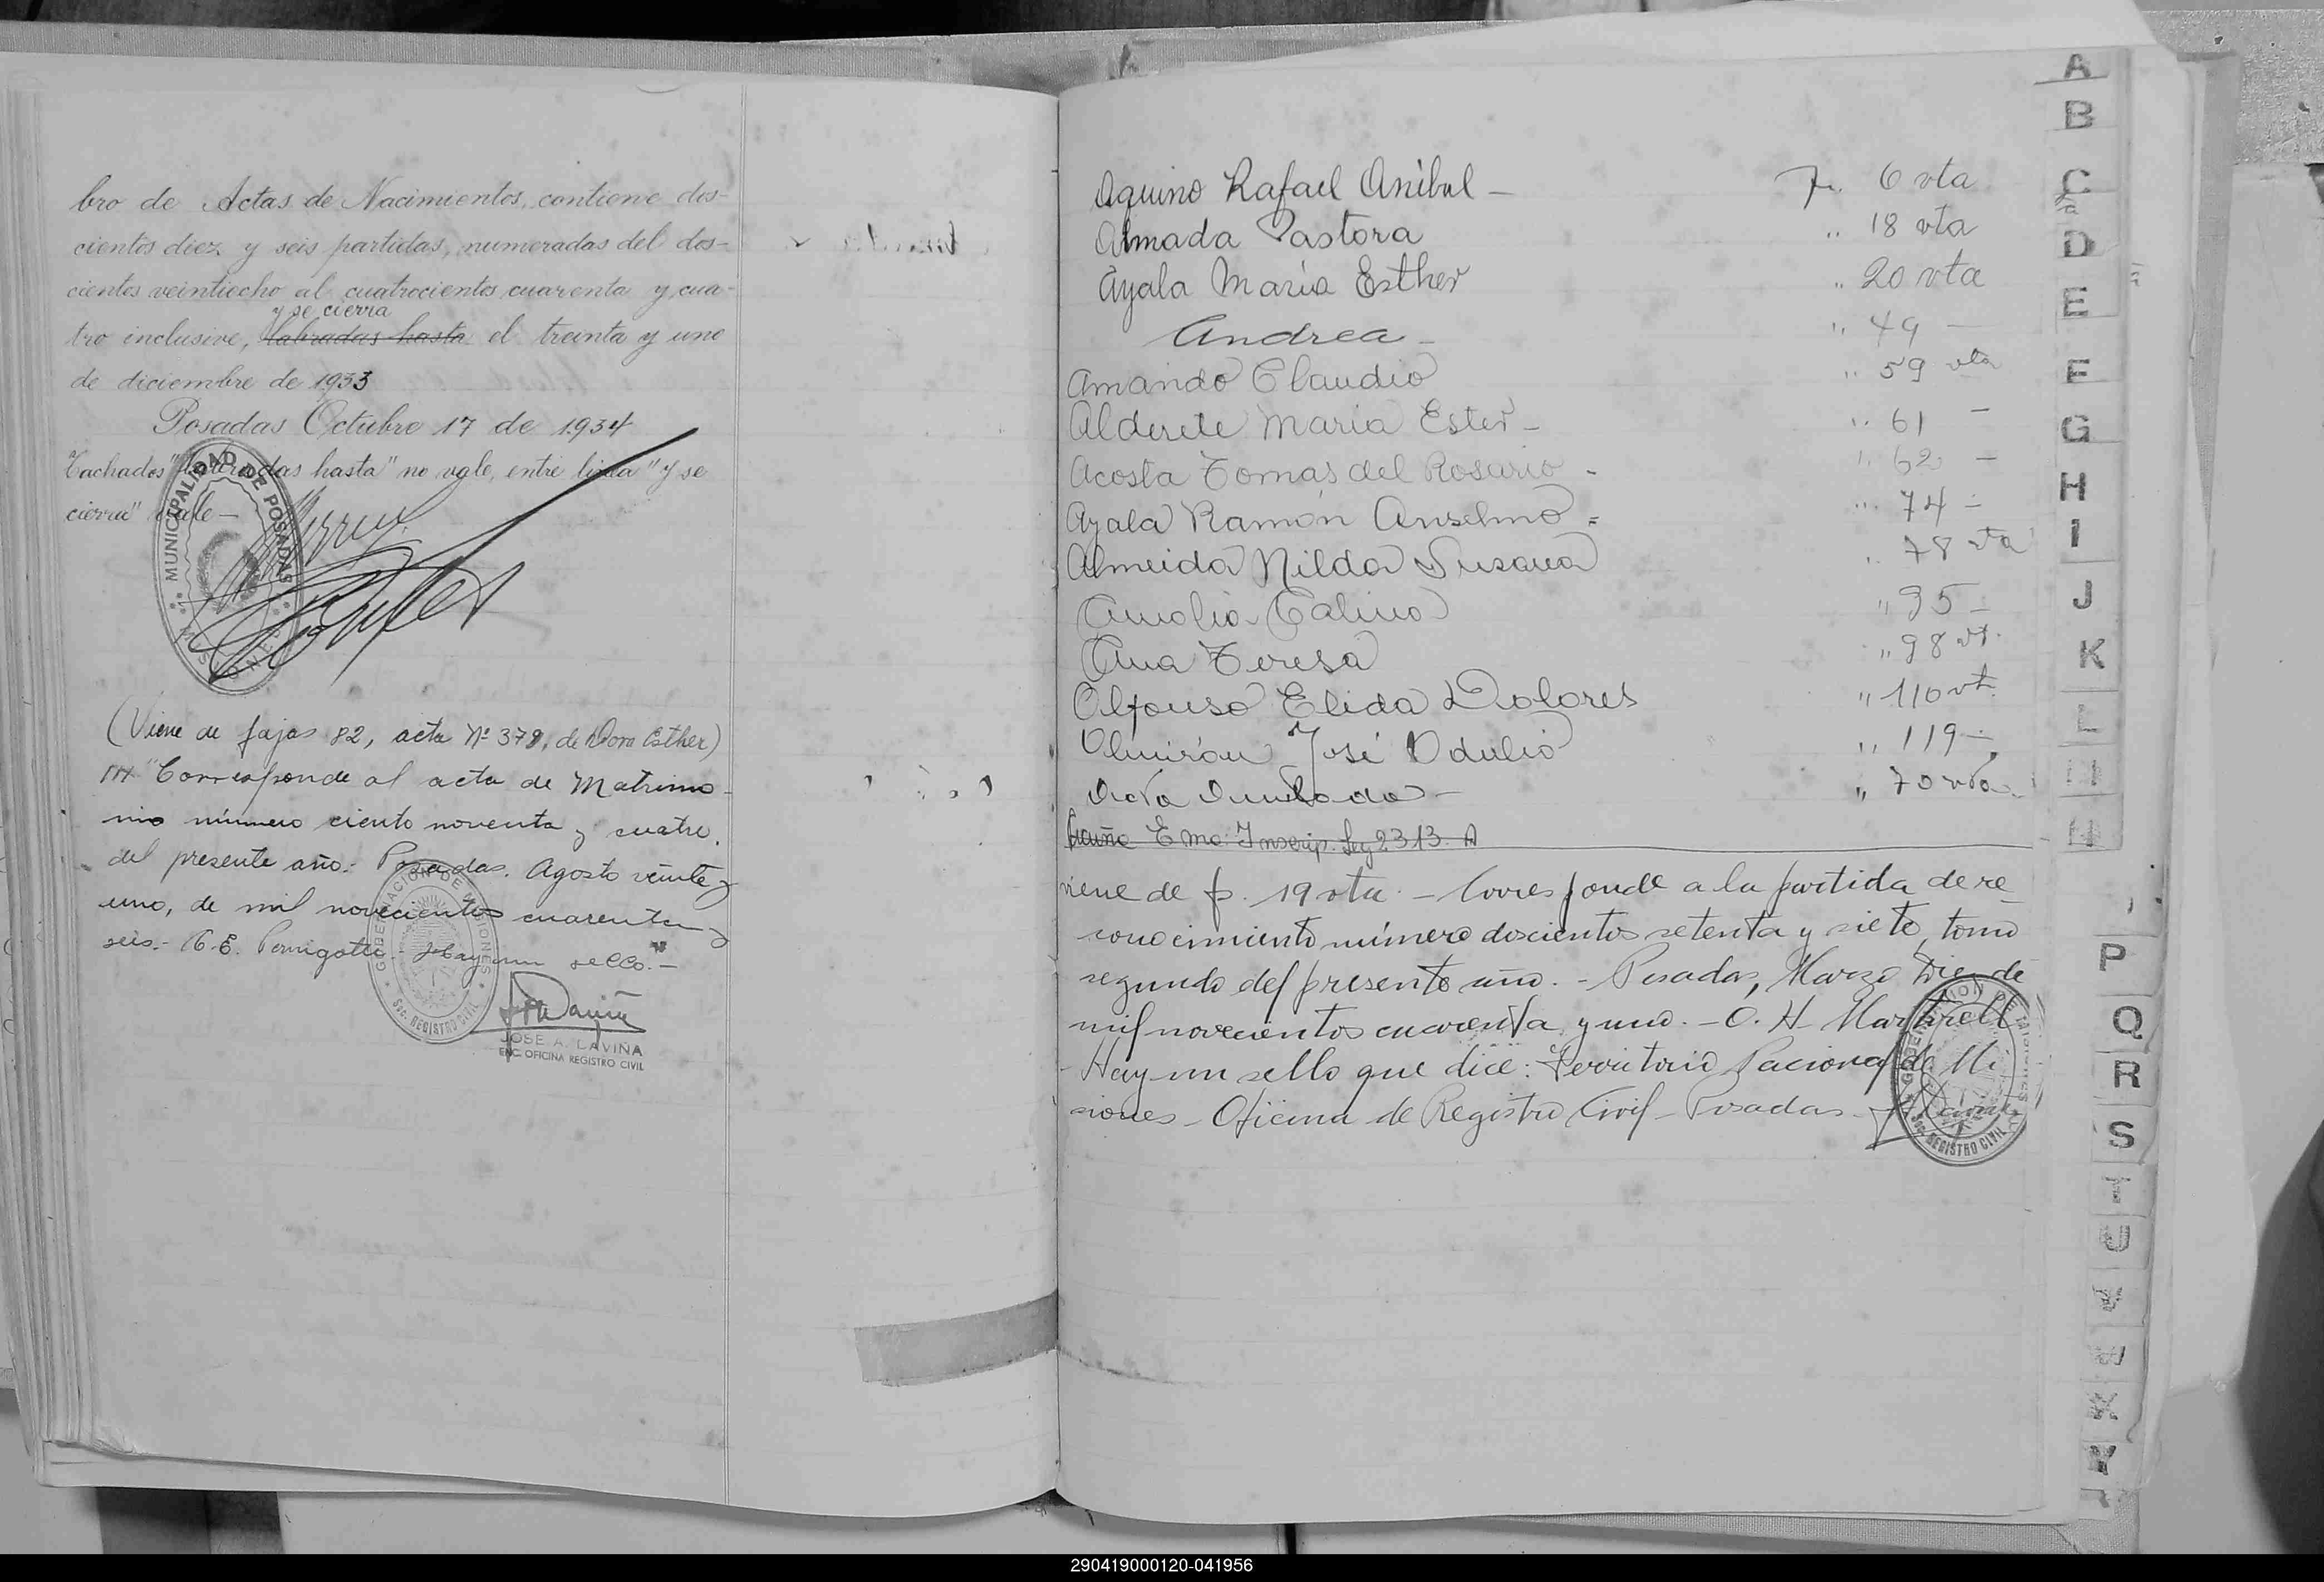 bro de Actas de Nacimientos, contiene dos-
cientos diez y seis partidas, numeradas del dos-
cientos veintiocho al cuatrocientos cuarenta y cua-
y se cierra
tro inclusive, labradas hasta el treinta y uno
de diciembre de 1933
Posadas Octubre 17 de 1934
Tachados "labradas hasta" no vale, entre linea "y se
cierra" vale—
MUNICIPALIDAD DE POSADAS
MISIONES
(Viene de fojas 82, acta Nº 378, de Dora Esther)
"Corresponde al acta de Matrimo-
nio número ciento noventa y cuatro.
del presente año.- Posadas. Agosto veinte y
uno, de mil novecientos cuarenta y
seis.- Hay un sello."—
GOBERNACION DE MISIONES
Sec. REGISTRO CIVIL
JOSE A. LAVIÑA
ENC. OFICINA REGISTRO CIVIL
Aquino Rafael Anibal — Fo. 6 vta
Almada Pastora " 18 vta
Ayala María Esther " 20 vta
Andrea — " 49 —
Amando Claudio " 59 vta
Alderete Maria Ester — " 61 —
Acosta Tomás del Rosario - " 62 —
Ayala Ramón Anselmo = " 74 —
Almeida Nilda Susana " 78 vta
" 95 —
Ana Teresa " 98 vt.
Alfonso Elida Dolores " 110 vt.
Almirón José Odulio " 119 —
Acta Anulada — " 70 vta.
Acuña Ema: Inscrip. Ley 2313. A
viene de f. 19 vta. — Corresponde a la partida de re-
conocimiento número doscientos setenta y siete, tomo
segundo del presente año. - Posadas, Marzo de
mil novecientos cuarenta y uno. — O. H.
- Hay un sello que dice: Territorio Nacional de Mi
siones - Oficina de Registro Civil - Posadas -
GOBERNACION DE MISIONES
Sec. REGISTRO CIVIL
A
B
C
D
E
F
G
H
I
J
K
L
Ll
N
P
Q
R
S
T
U
V
W
X
Y
290419000120-041956